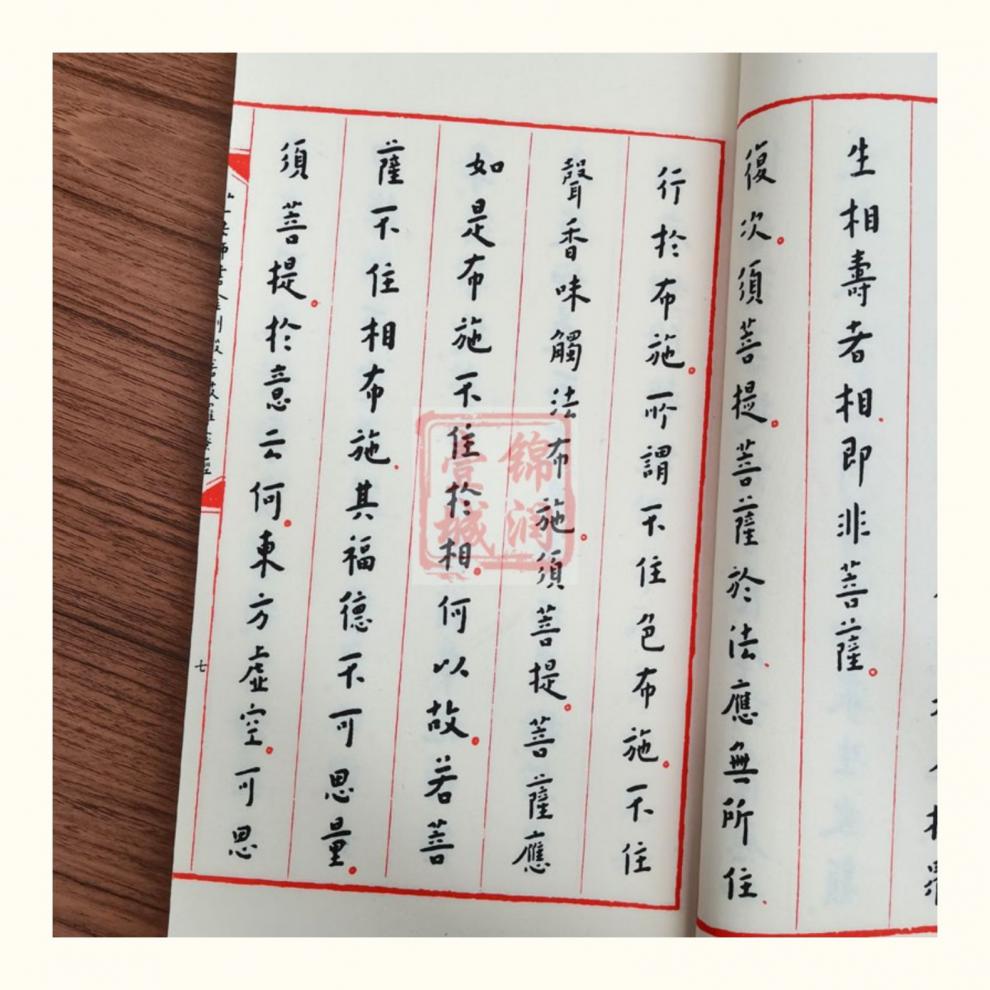 生相壽者相即非菩薩。
復次。須菩提。菩薩於法。應無所住。
行於布施。所謂不住色布施。不住
聲香味觸法布施。須菩提。菩薩應
如是布施不住於相。何以故。若菩
薩不住相布施。其福德不可思量。
須菩提。於意云何。東方虛空。可思
七
錦潤壹城